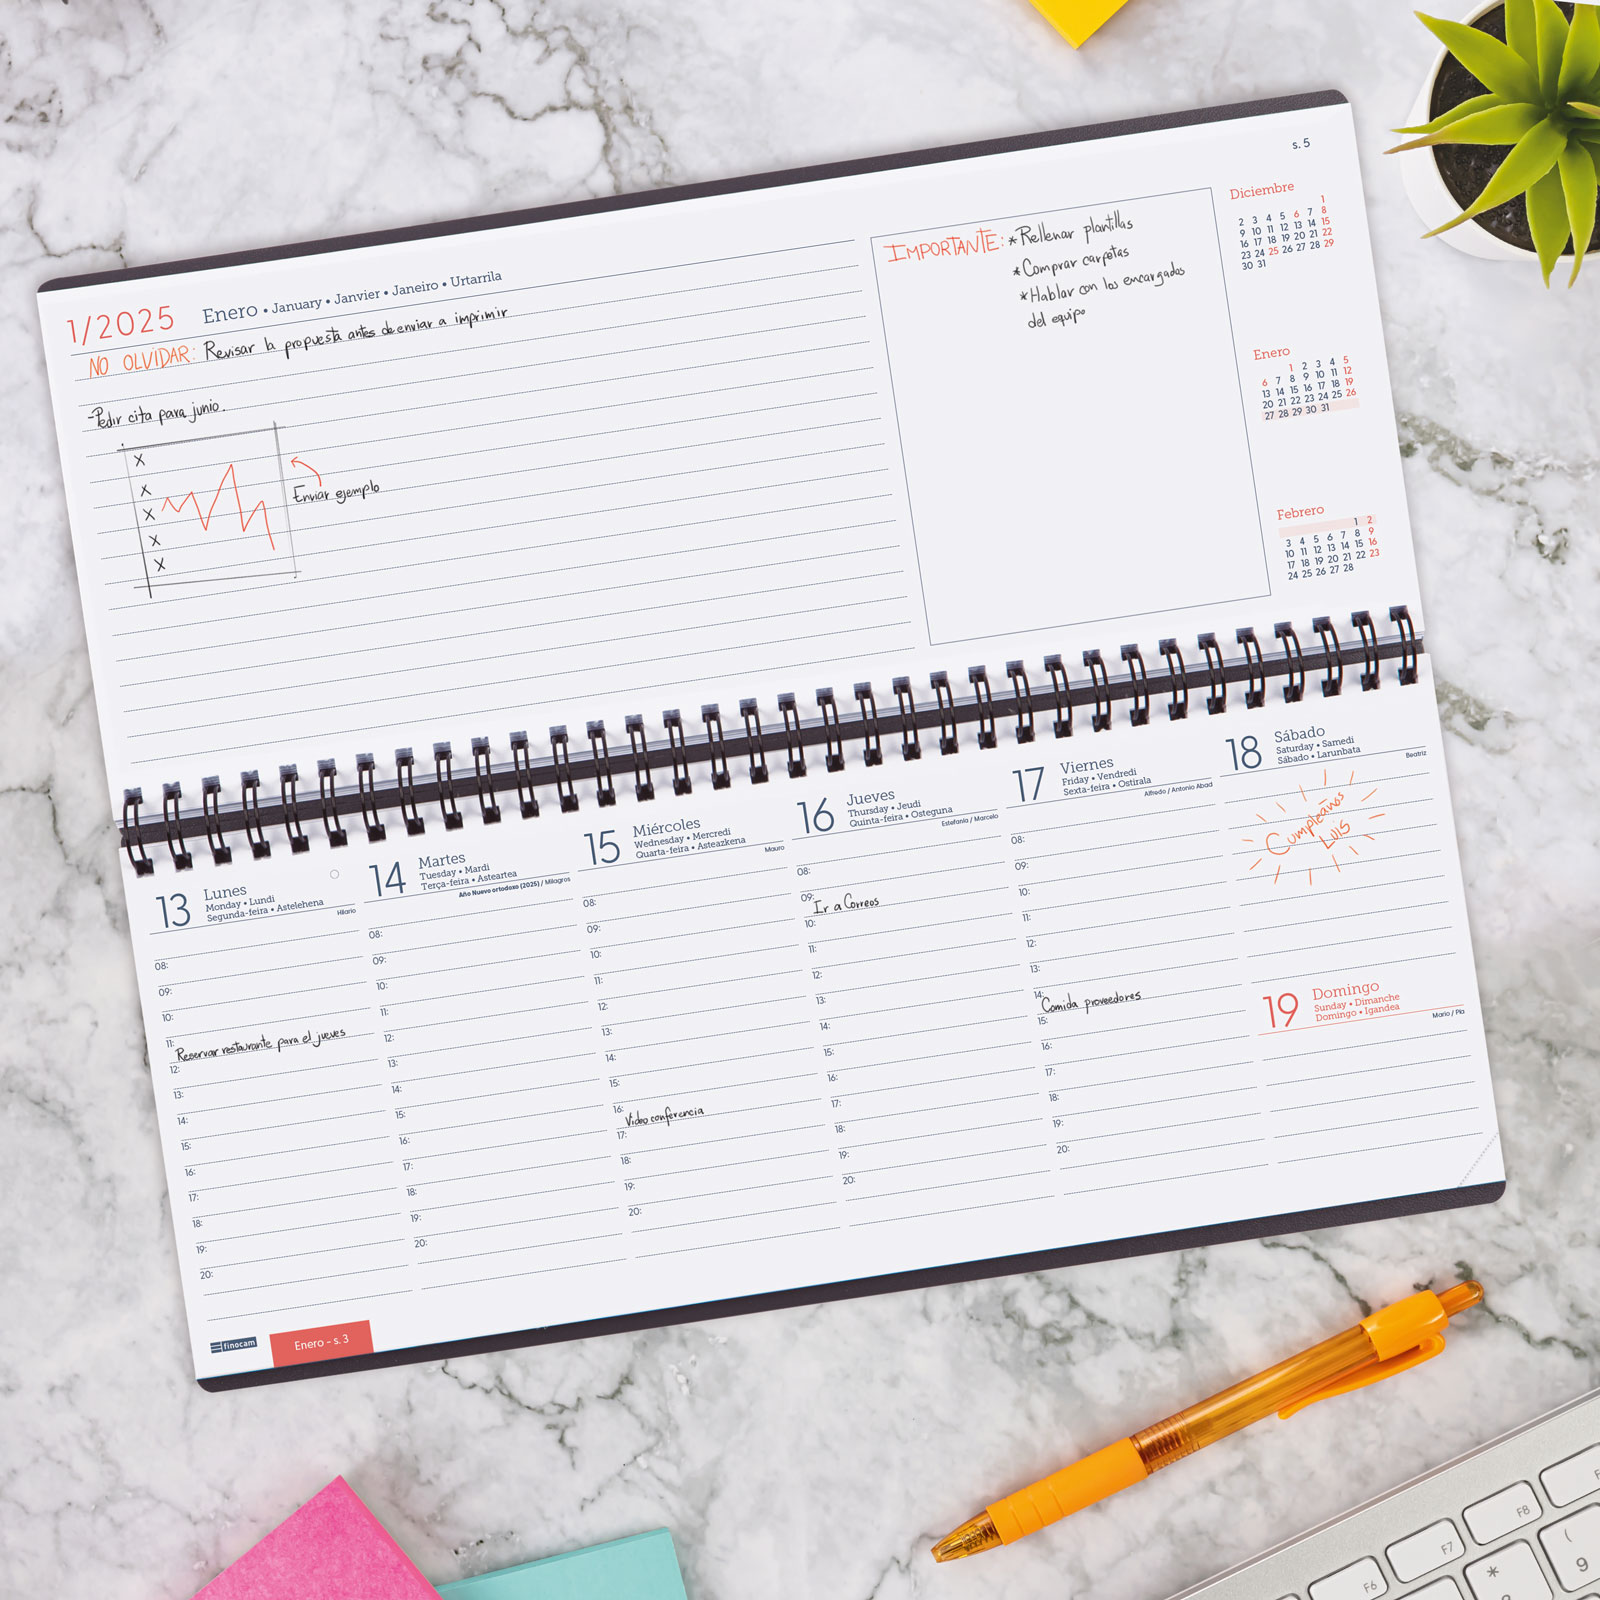 s. 5
1/2025 Enero • January • Janvier • Janeiro • Urtarrila
NO OLVIDAR: Revisar la propuesta antes de enviar a imprimir
-Pedir cita para junio.
X
X
X
X
X
Enviar ejemplo
IMPORTANTE: *Rellenar plantillas
*Comprar carpetas
*Hablar con los encargados
del equipo
Diciembre
1
2 3 4 5 6 7 8
9 10 11 12 13 14 15
16 17 18 19 20 21 22
23 24 25 26 27 28 29
30 31
Enero
1 2 3 4 5
6 7 8 9 10 11 12
13 14 15 16 17 18 19
20 21 22 23 24 25 26
27 28 29 30 31
Febrero
1 2
3 4 5 6 7 8 9
10 11 12 13 14 15 16
17 18 19 20 21 22 23
24 25 26 27 28
13 Lunes
Monday • Lundi
Segunda-feira • Astelehena
Hilario
08:
09:
10:
11:
Reservar restaurante para el jueves
12:
13:
14:
15:
16:
17:
18:
19:
20:
14 Martes
Tuesday • Mardi
Terça-feira • Asteartea
Año Nuevo ortodoxo (2025) / Milagros
08:
09:
10:
11:
12:
13:
14:
15:
16:
17:
18:
19:
20:
15 Miércoles
Wednesday • Mercredi
Quarta-feira • Asteazkena
Mauro
08:
09:
10:
11:
12:
13:
14:
15:
16:
Video conferencia
17:
18:
19:
20:
16 Jueves
Thursday • Jeudi
Quinta-feira • Osteguna
Estefanía / Marcelo
08:
09:
Ir a Correos
10:
11:
12:
13:
14:
15:
16:
17:
18:
19:
20:
17 Viernes
Friday • Vendredi
Sexta-feira • Ostirala
Alfredo / Antonio Abad
08:
09:
10:
11:
12:
13:
14:
Comida proveedores
15:
16:
17:
18:
19:
20:
18 Sábado
Saturday • Samedi
Sábado • Larunbata
Beatriz
Cumpleaños
Luis
19 Domingo
Sunday • Dimanche
Domingo • Igandea
Mario / Pía
finocam
Enero - s. 3
F6
F7
F8
*
8
(
9